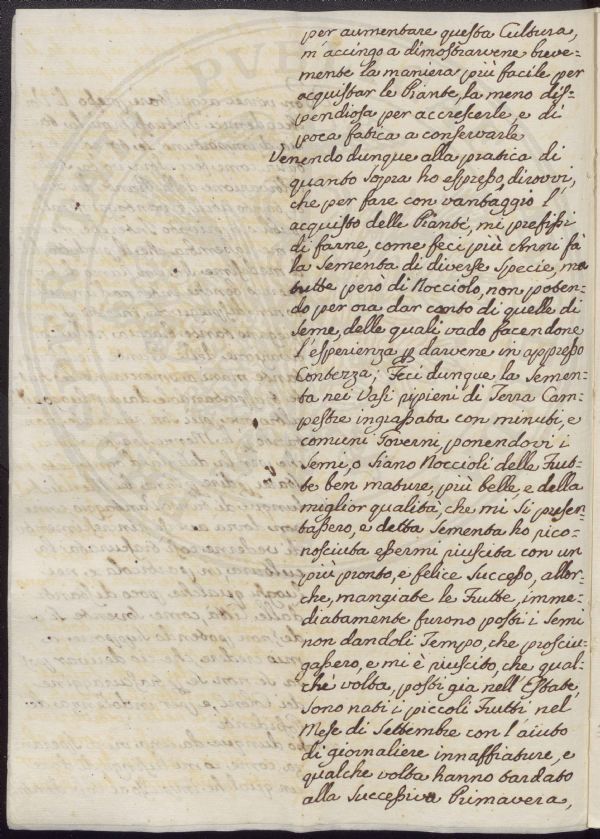 per aumentare questa Cultura,
m'accingo a dimostrarvene breve=
mente la maniera più facile per
acquistar le Piante, la meno dis=
pendiosa per accrescerle, e di
poca fatica a conservarle
Venendo dunque alla pratica di
quanto sopra ho espresso, dirovvi,
che per fare con vantaggio l'
acquisto delle Piante, mi prefissi
di farne, come feci più Anni fà
la Sementa di diverse Specie, ma
tutte però di Nocciolo, non poten=
do per ora dar conto di quelle di
seme, delle quali vado facendone
l'esperienza p darvene in appresso
Contezza; Feci dunque la Semen=
ta nei Vasi ripieni di Terra Cam=
pestre ingrassata con minuti, e
comuni Governi, ponendovi i
Semi, o siano Noccioli delle Frut=
te ben mature, più belle, e della
miglior qualità, che mi si presen=
tassero, e detta Sementa ho rico=
nosciuta essermi riuscita con un
più pronto, e felice Successo, allor=
che, mangiate le Frutte, imme=
diatamente furono posti i Semi
non dandoli Tempo, che prosciu=
gassero, e mi è riuscito, che qual=
che volta, posti gia nell'Estate,
sono nati i piccoli Frutti nel
Mese di Settembre con l'aiuto
di giornaliere innaffiature, e
qualche volta hanno tardato
alla Successiva Primavera,